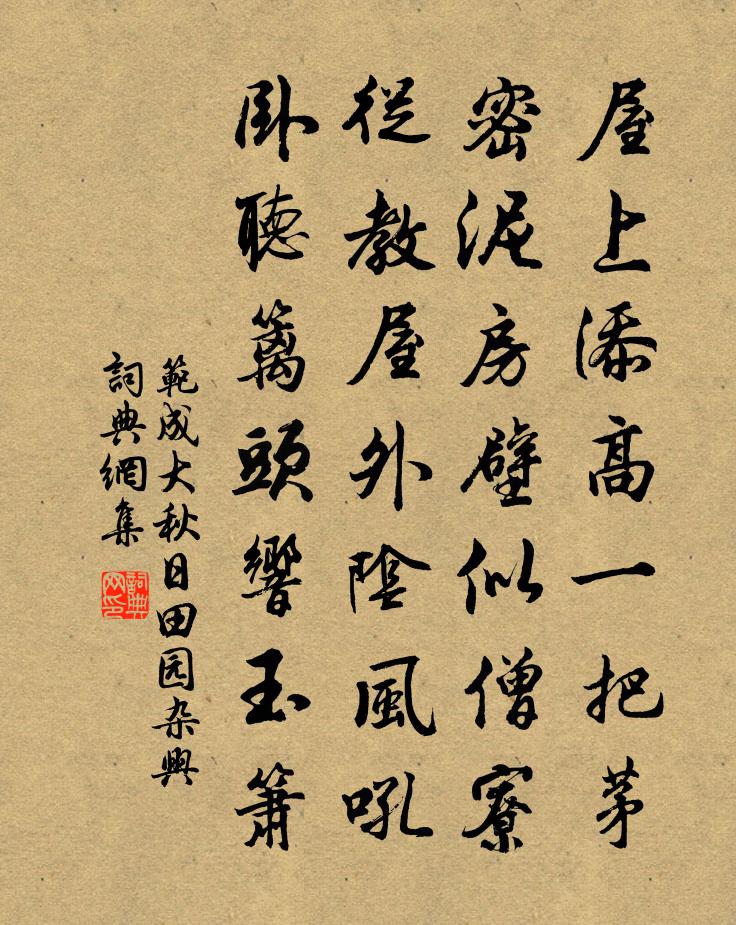 屋上添高一把茅
密泥房壁似僧寮
從教屋外陰風吼
卧聽篱頭響玉簫
範成大秋日田园杂興
詞典網集
詞典网印